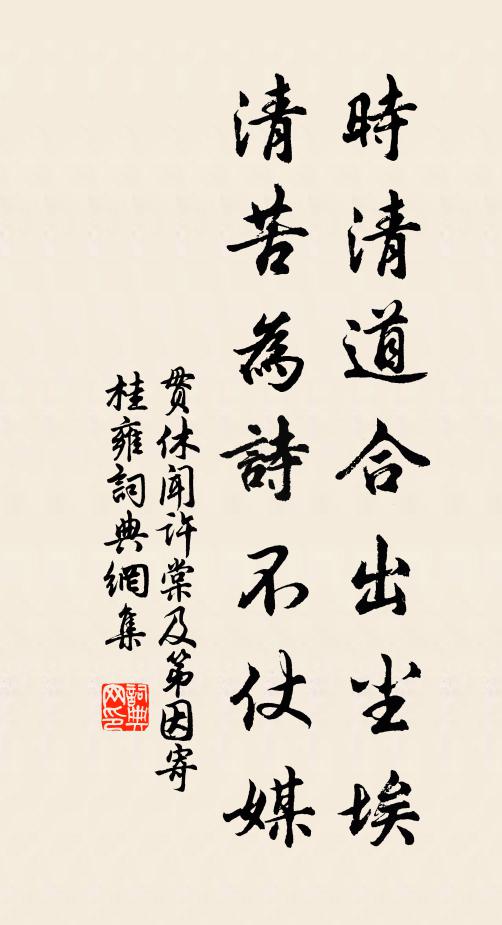 時清道合出尘埃
清苦為詩不仗媒
贯休闻许棠及第因寄
桂雍詞典網集
詞典网印